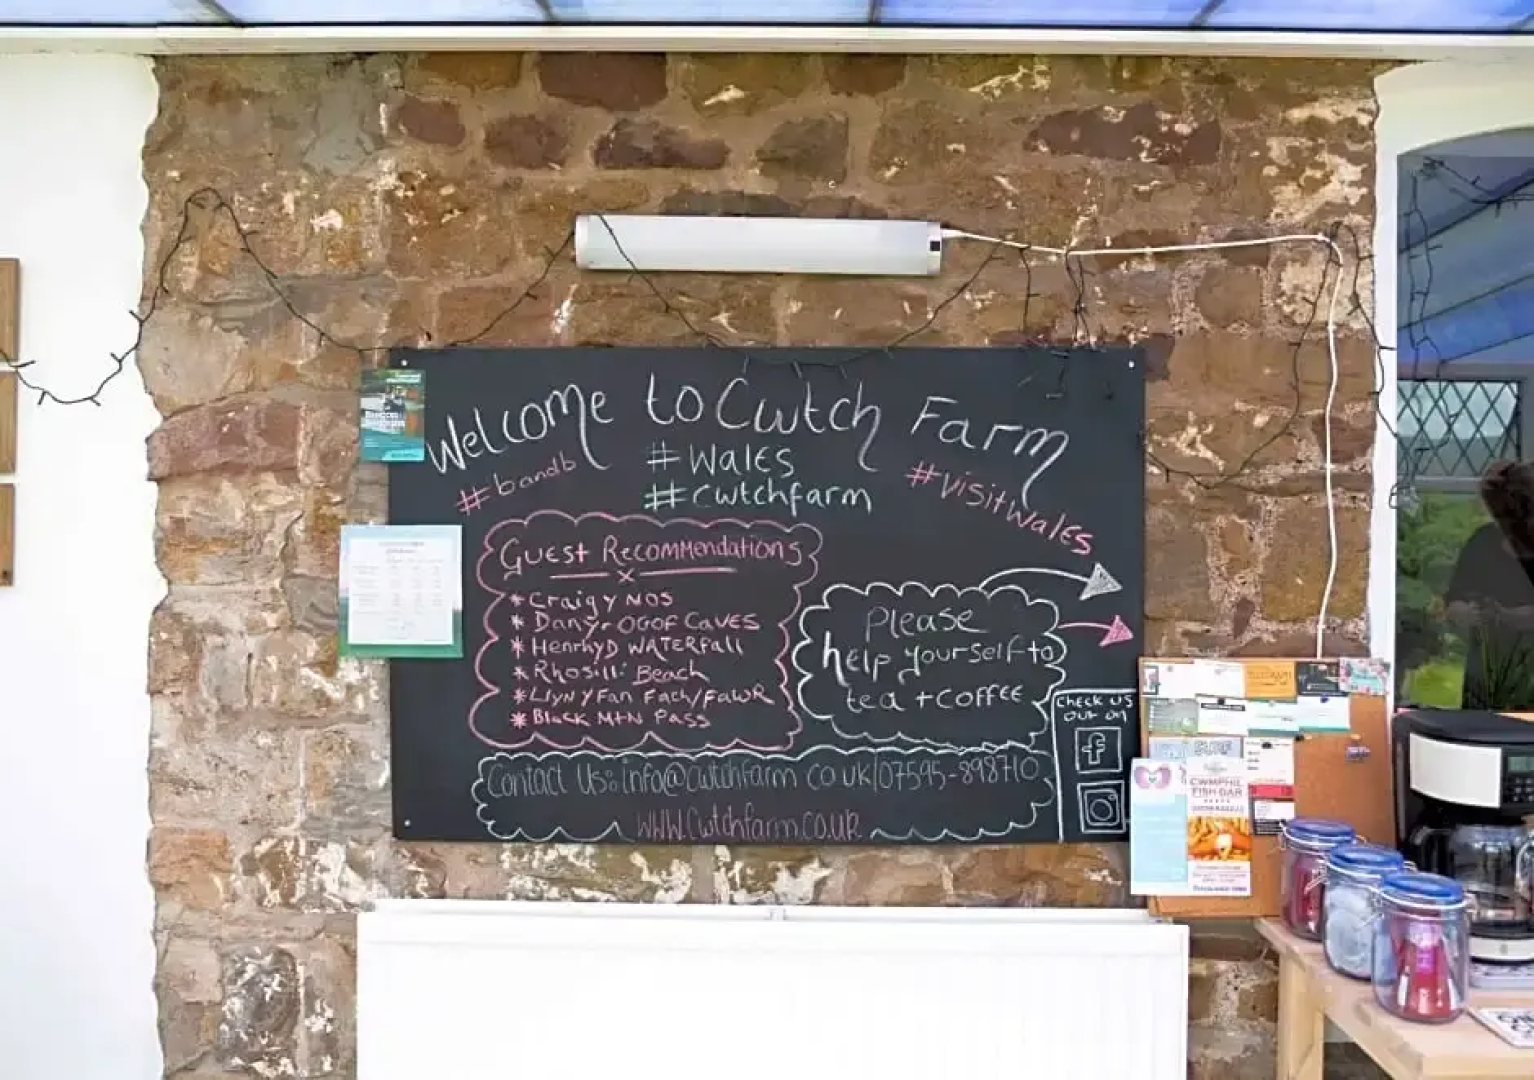 Welcome to Cwtch Farm
#bandb
#Wales
#cwtchfarm
#visitwales
Guest Recommendations
x
* Craig y Nos
* Dan yr Ogof Caves
* Henrhyd Waterfall
* Rhosilli Beach
* Llyn y Fan Fach/Fawr
* Black Mtn Pass
Please
help yourself to
tea + coffee
Check us
out on
f
Contact Us: info@cwtchfarm co uk/07595-898710
www.cwtchfarm.co.uk
SURF
CWMPHIL
FISH BAR